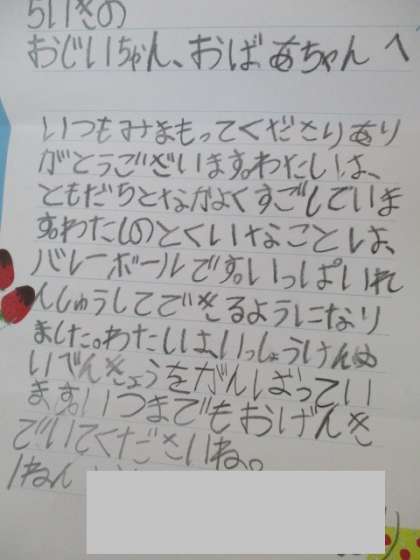 ちいきの
おじいちゃん、おばあちゃんへ
いつもみまもってくださりあり
がとうございます。わたしは、
ともだちとなかよくすごしていま
す。わたしのとくいなことは、
バレーボールです。いっぱいれ
んしゅうしてできるようになり
ました。わたしは、いっしょうけんめ
いべんきょうをがんばってい
ます。いつまでもおげんき
でいてくださいね。
1ねん